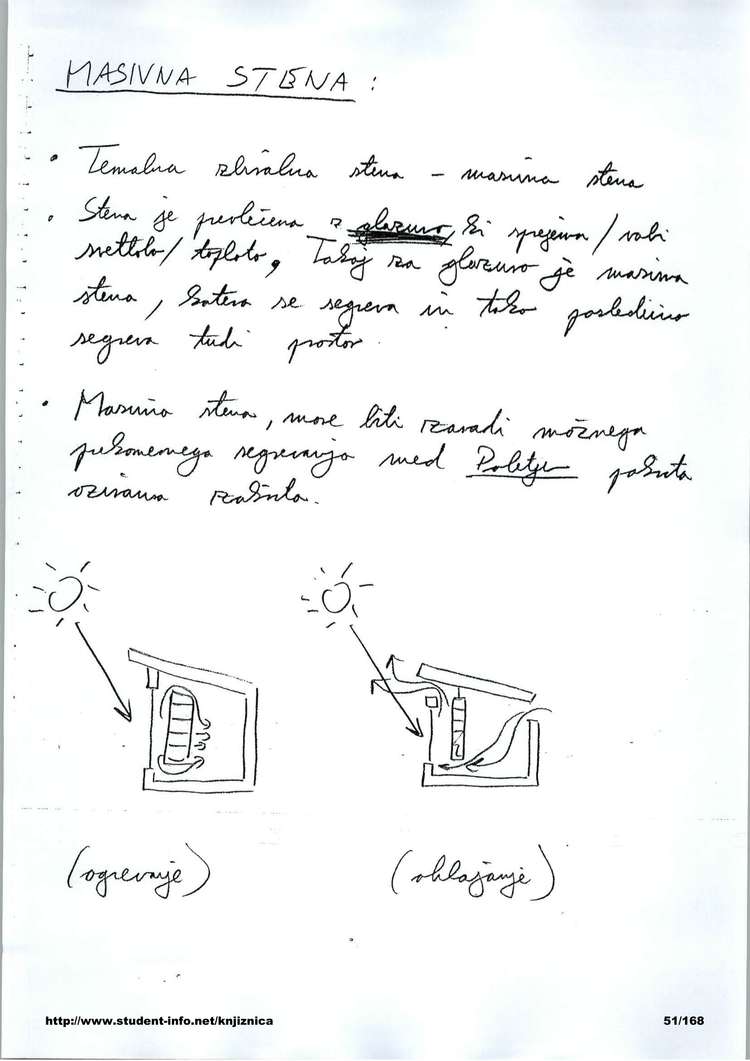 MASIVNA STENA :
• Temalna zbiralna stena - masivna stena
• Stena je prevlečena z glazuro, ki sprejema / vabi
svetlobo / toploto. Takoj za glazuro je masivna
stena, katera se segreva in tako posledično
segreva tudi prostor.
• Masivna stena, more biti izaradi možnega
prekomernega segrevanja med Poletjem pokrita
oziroma zaščita.
(ogrevanje)
(ohlajanje)
http://www.student-info.net/knjiznica
51/168